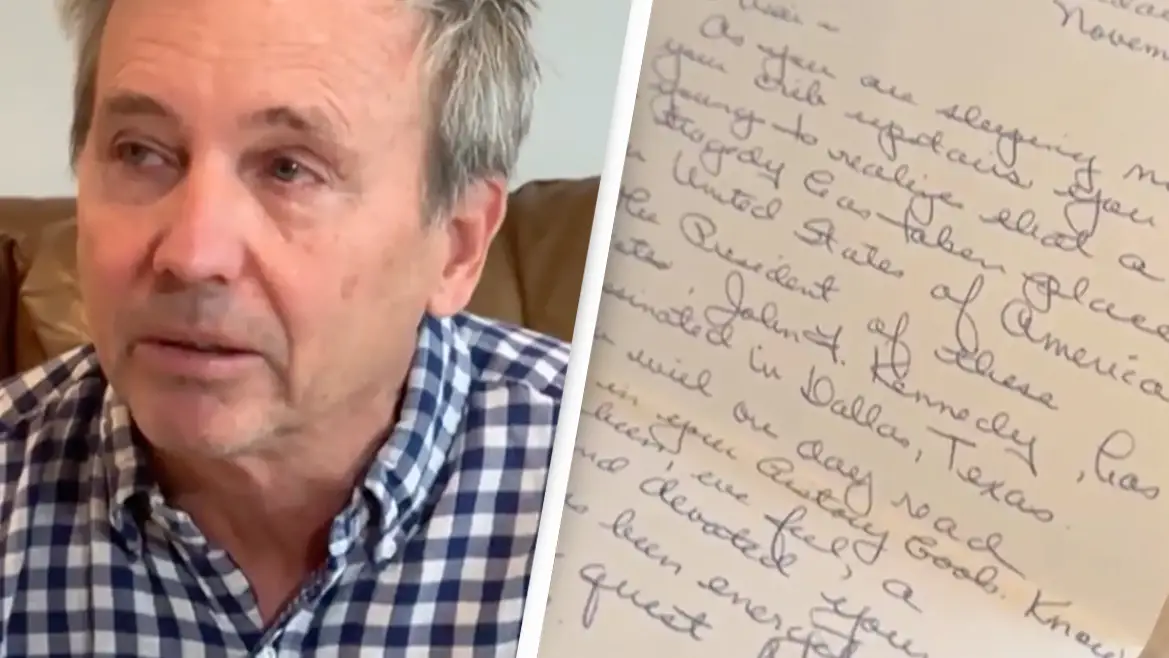 Novem
As you are sleeping
your crib upstairs you
young to realize that a
tragedy has taken place
United States of America
the President of these
John F. Kennedy, has
in Dallas, Texas.
will on day read
in your history book. Know
we feel, a
and devoted, young
been energ
quest